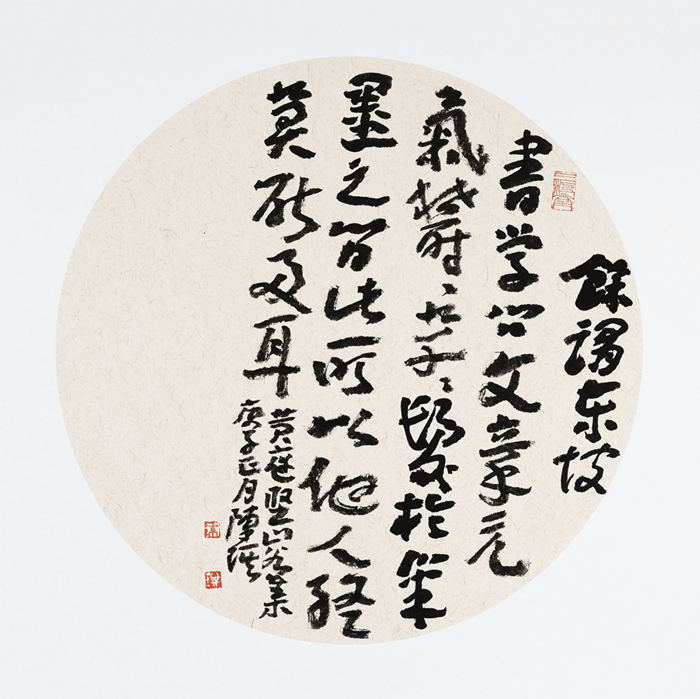 餘謂东坡
書学问文章元
氣鬱々芊々發於筆
墨之间此所以他人終
莫能及耳
黄庭坚山谷集
庚子正月陳